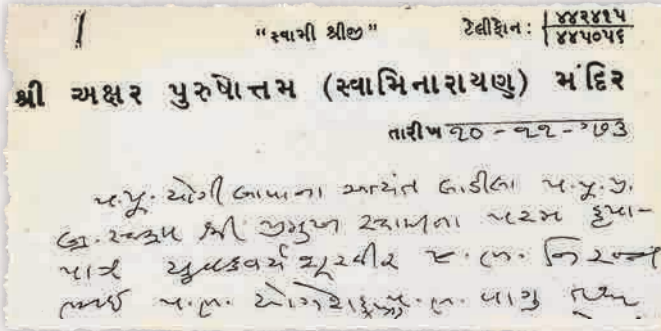 "સ્વામી શ્રીજી" ટેલીફોન : ૪૪૨૪૧૫
૪૪૫૦૫૬
શ્રી અક્ષર પુરુષોત્તમ (સ્વામિનારાયણ) મંદિર
તારીખ ૧૦ - ૧૧ - '૭૩
પ.પૂ. યોગીબાપાના અત્યંત લાડીલા પ.પૂ.પ્ર.
બ્ર. સ્વરૂપ શ્રી પ્રમુખ સ્વામીના પરમ કૃપા-
પાત્ર યુવકવર્ય શૂરવીર પ.ભ. નિરન્જન
ભાઈ પ.ભ.